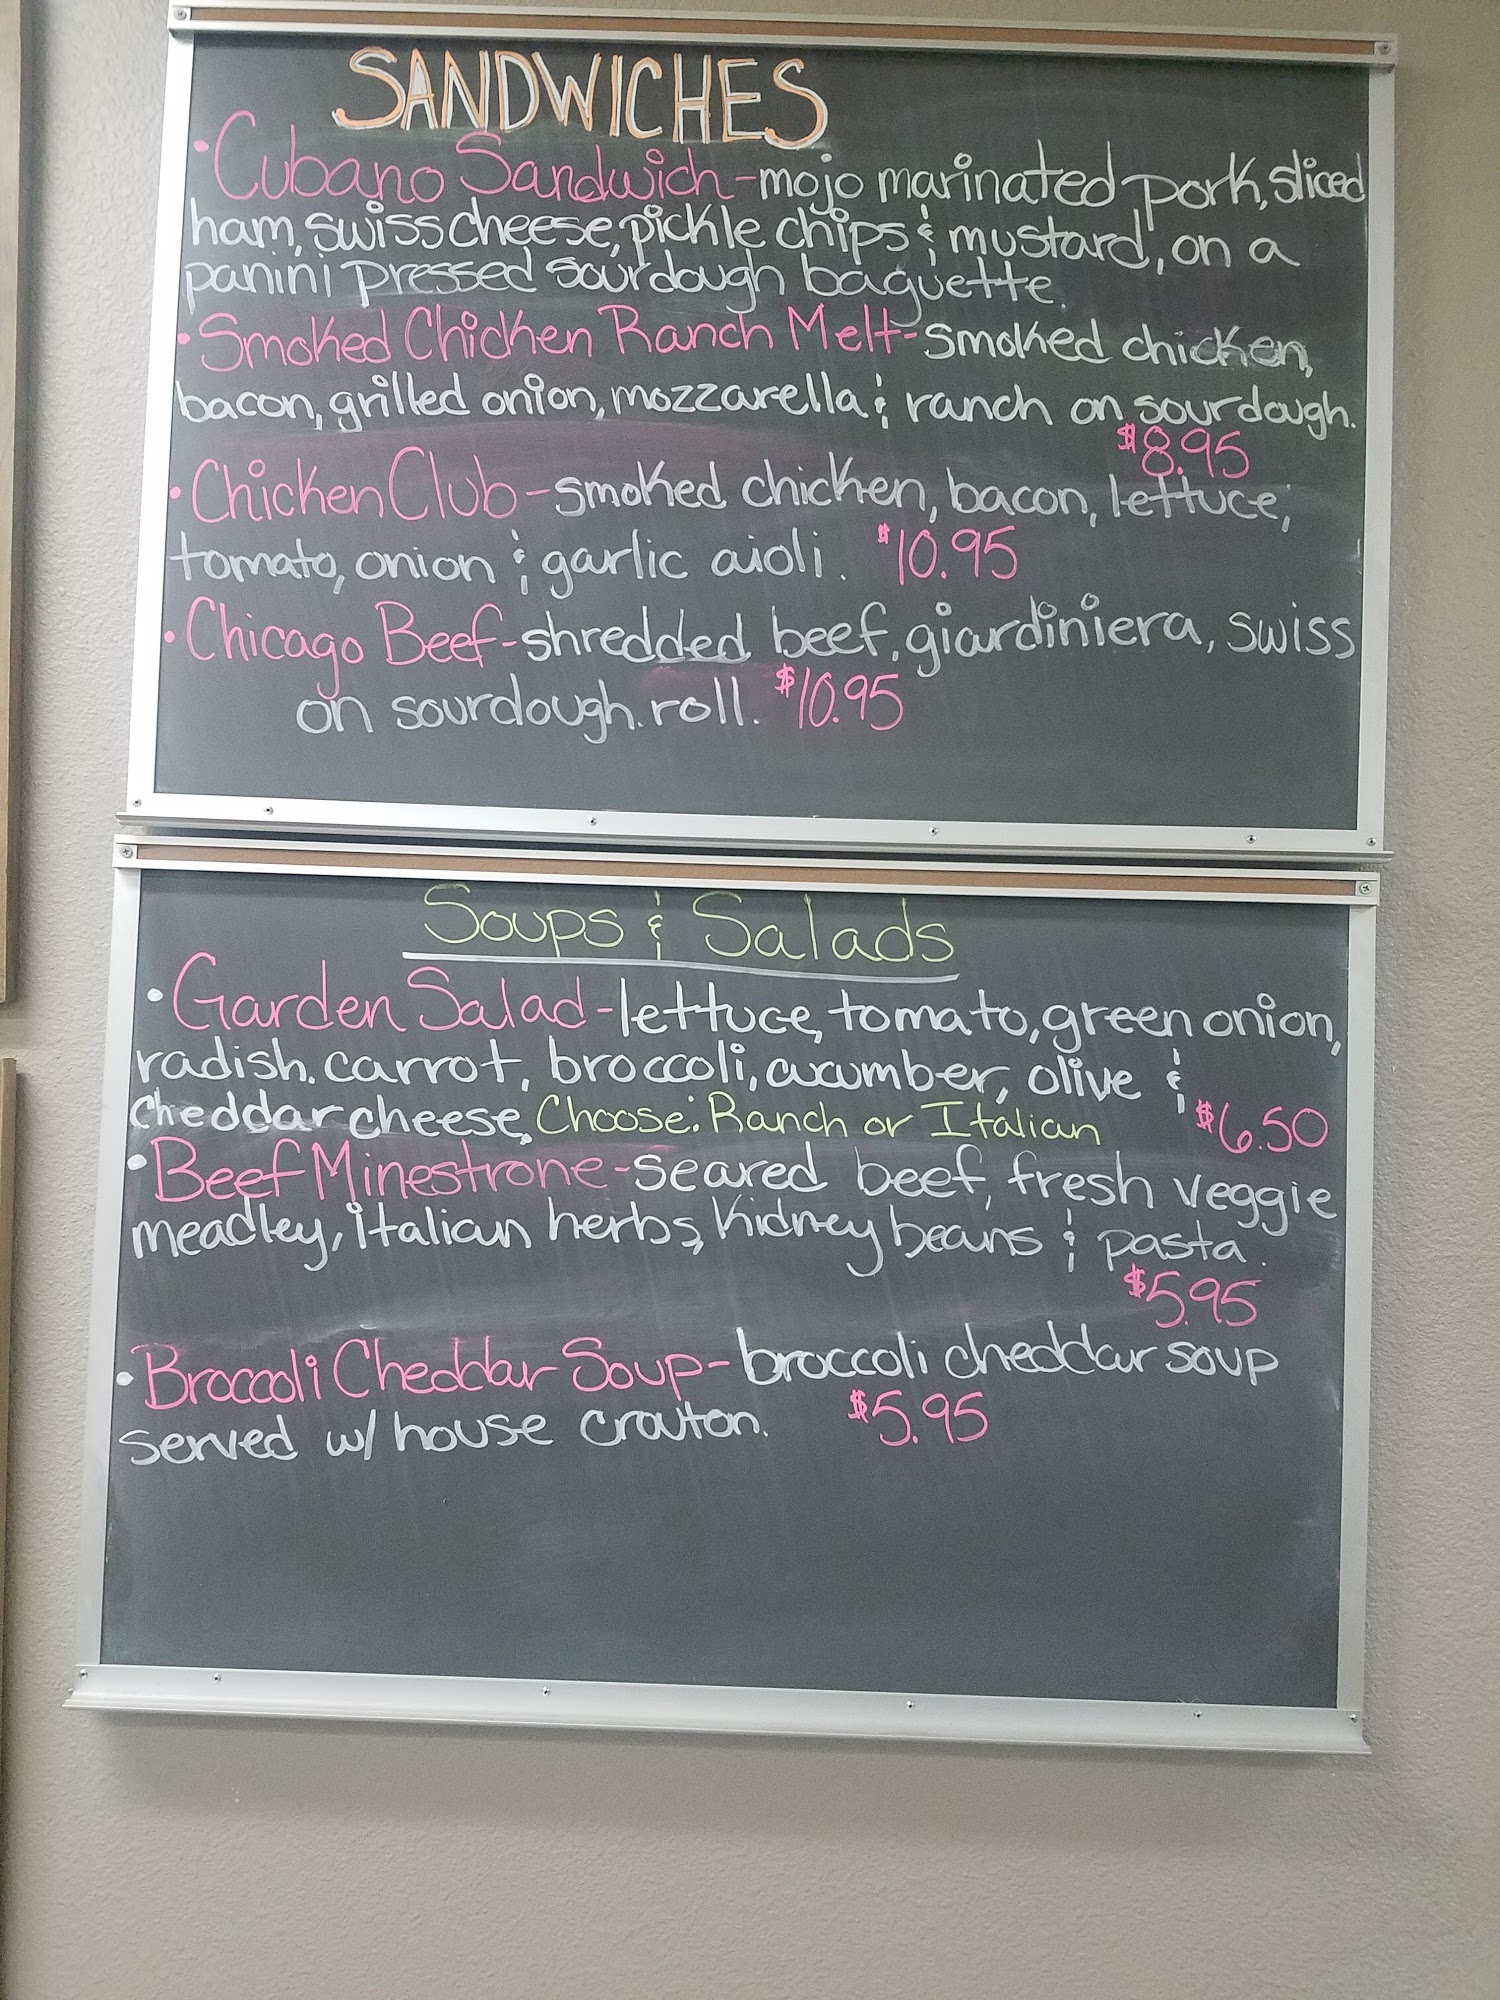 SANDWICHES
• Cubano Sandwich - mojo marinated pork, sliced
ham, swiss cheese, pickle chips & mustard, on a
panini pressed sourdough baguette.
• Smoked Chicken Ranch Melt - smoked chicken,
bacon, grilled onion, mozzarella & ranch on sourdough.
$8.95
• Chicken Club - smoked chicken, bacon, lettuce,
tomato, onion & garlic aioli. $10.95
• Chicago Beef - shredded beef, giardiniera, swiss
on sourdough. roll. $10.95
Soups & Salads
• Garden Salad - lettuce, tomato, green onion,
radish. carrot, broccoli, cucumber, olive &
cheddar cheese, Choose: Ranch or Italian $6.50
• Beef Minestrone - seared beef, fresh veggie
meadley, italian herbs, kidney beans & pasta.
$5.95
• Broccoli Cheddar Soup - broccoli cheddar soup
served w/ house crouton. $5.95